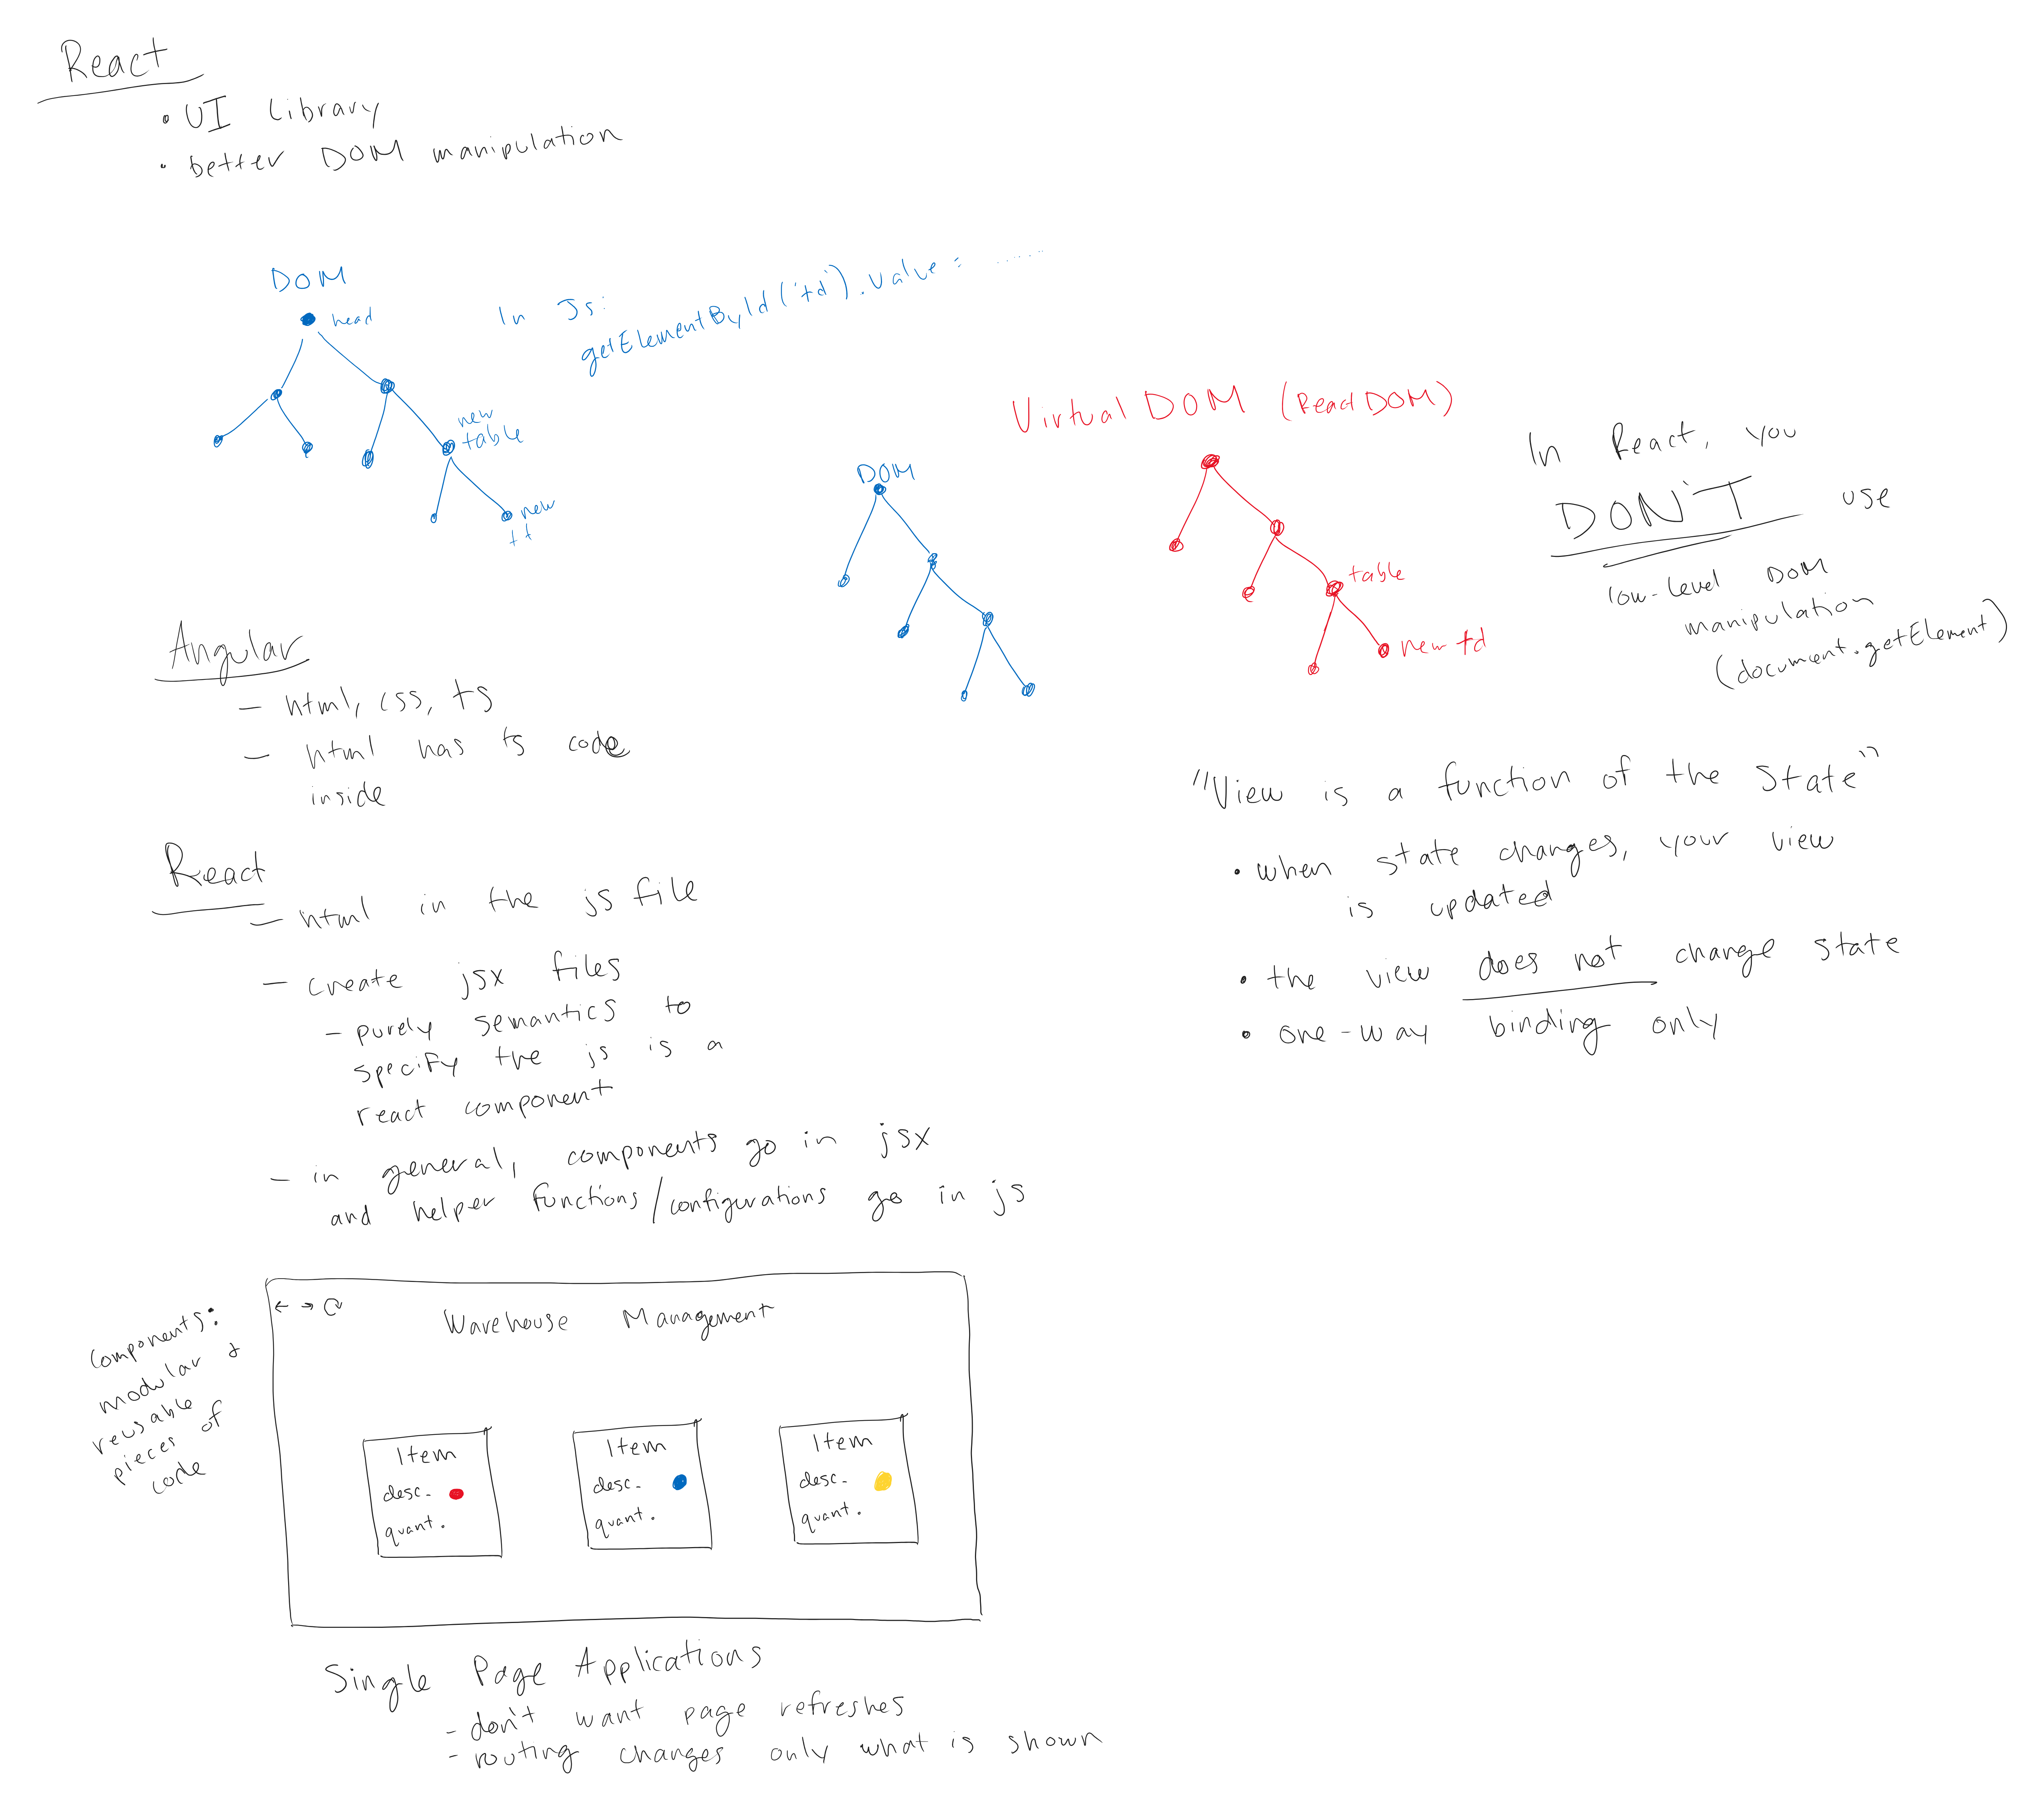 React
• UI Library
• better DOM manipulation
DOM
head
new
table
new
In Js:
getElementById('td').value = ......
Virtual DOM (React DOM)
DOM
table
new td
In React, you
DON'T use
low-level DOM
manipulation
(document.getElement)
Angular
- html, css, ts
- html has ts code
inside
React
- html in the js file
- create jsx files
- purely semantics to
specify the js is a
react component
- in general, components go in jsx
and helper functions/configurations go in js
"View is a function of the state"
• when state changes, your view
is updated
• the view does not change state
• one-way binding only
components:
modular &
reusable
pieces of
code
← → Warehouse Management
Item
desc.
quant.
Item
desc.
quant.
Item
desc.
quant.
Single Page Applications
- don't want page refreshes
- routing changes only what is shown